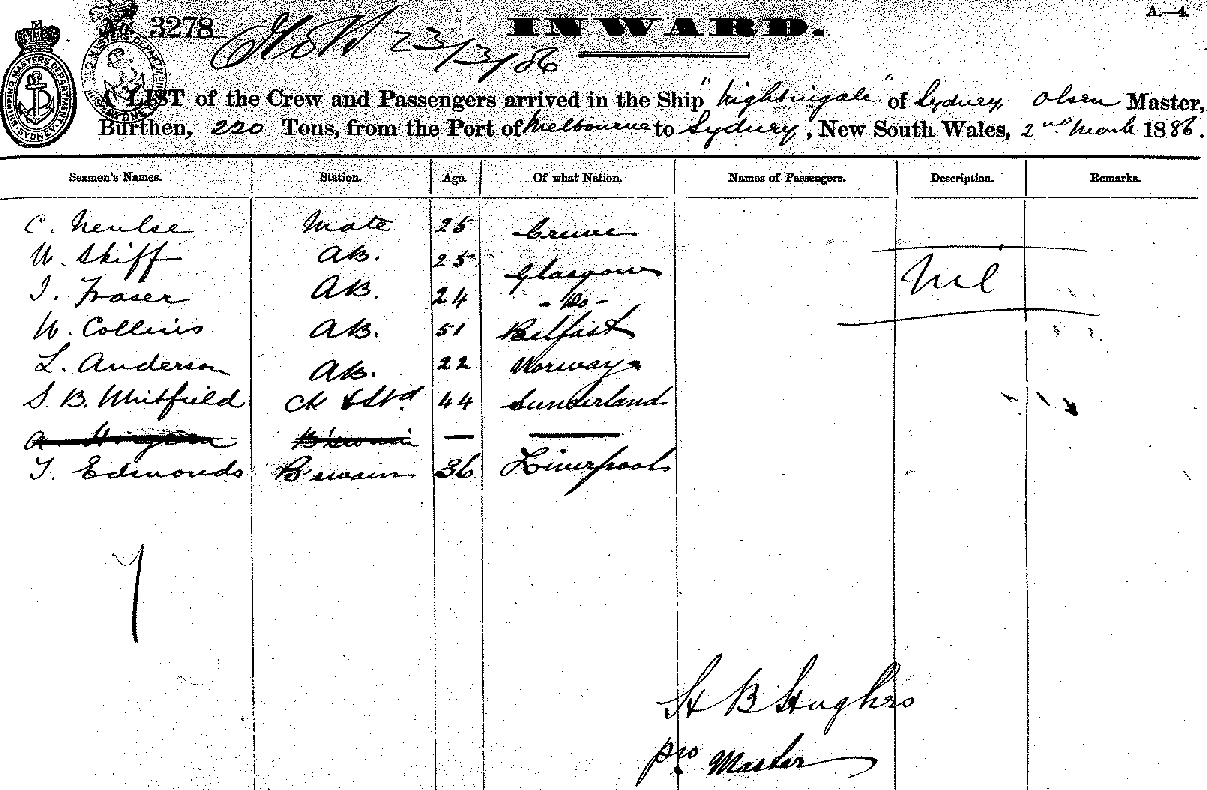 3278 23/3/86 INWARD. A.—4.
A LIST of the Crew and Passengers arrived in the Ship "Nightingale" of Sydney Olsen Master,
Burthen, 220 Tons, from the Port of Melbourne to Sydney, New South Wales, 2nd March 1886.
Seamen's Names. Station. Age. Of what Nation. Names of Passengers. Description. Remarks.
C. Mate 26
W. Skiff AB. 25 Glasgow
J. Fraser AB. 24 - Do -
W. Collins AB. 51 Belfast
L. Anderson AB. 22 Norway
S. B. Whitfield Ck & Std 44 Sunderland
T. Edmonds B'swain 36 Liverpool
Nil
7
H B Hughes
pro Master